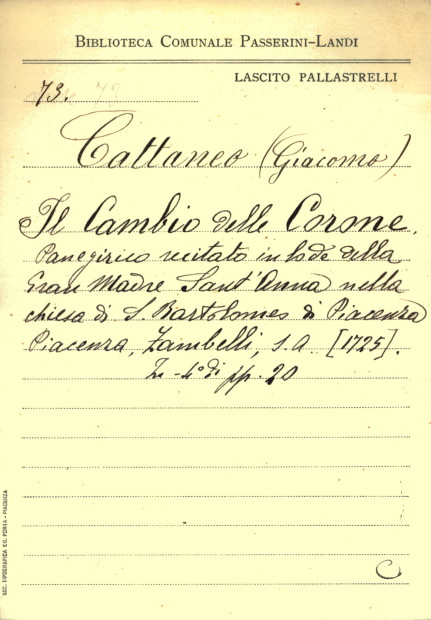 BIBLIOTECA COMUNALE PASSERINI-LANDI
LASCITO PALLASTRELLI
73.
Cattaneo (Giacomo)
Il Cambio delle Corone.
Panegirico recitato in lode della
Gran Madre Sant'Anna nella
chiesa di S. Bartolomeo di Piacenza
Piacenza, Zambelli, s.a. [1725].
In-4° di pp. 20
C
SOC. TIPOGRAFICA ED. PORTA - PIACENZA